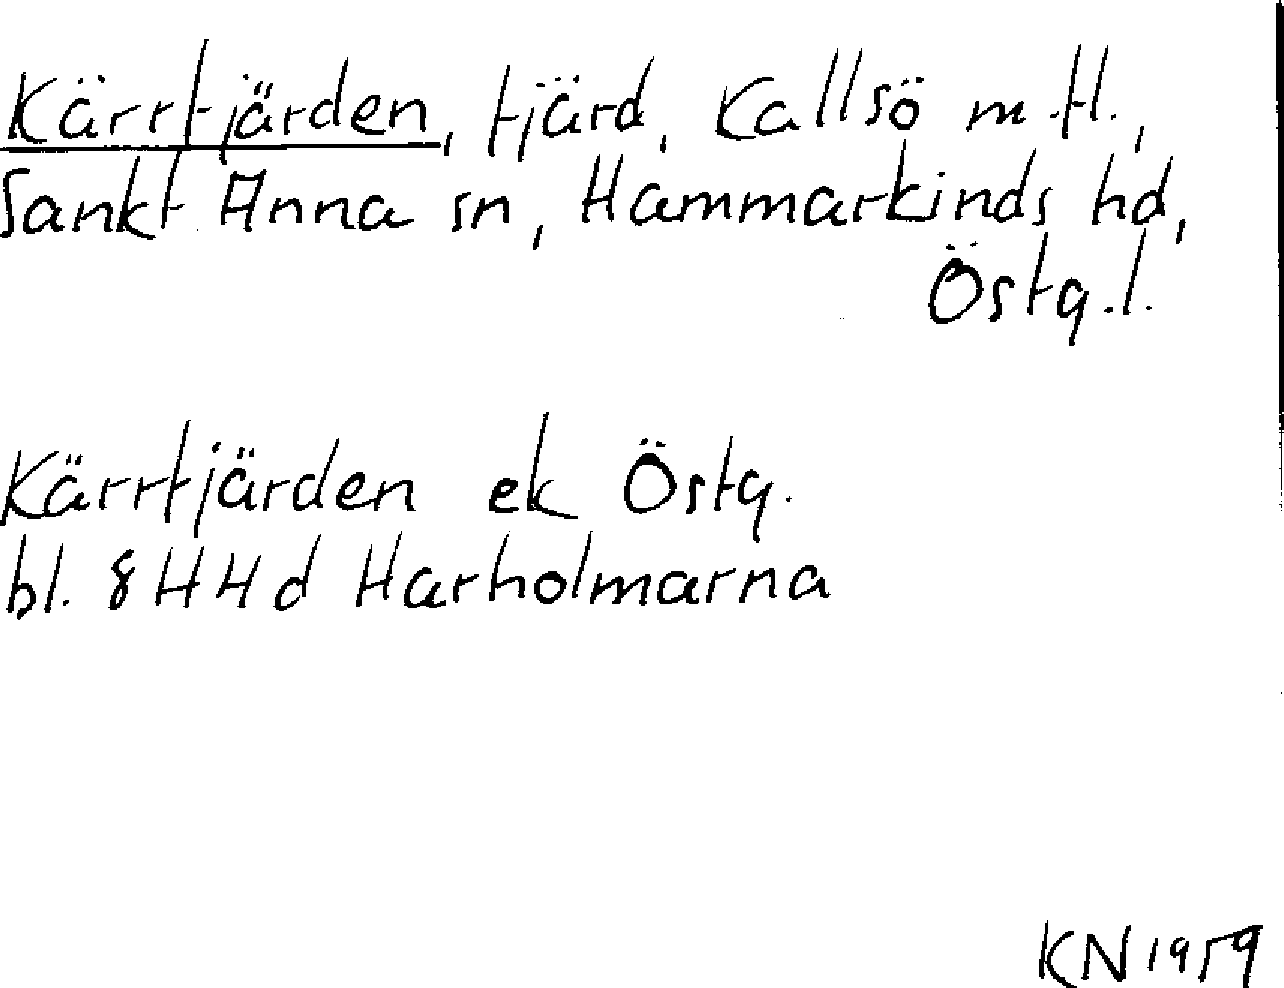 Kärrfjärden, fjärd, Kallsö m.fl.,
Sankt Anna sn, Hammarkinds hd,
Östg.l.
Kärrfjärden ek Östg.
bl. 8 H H d Harholmarna
KN 1959